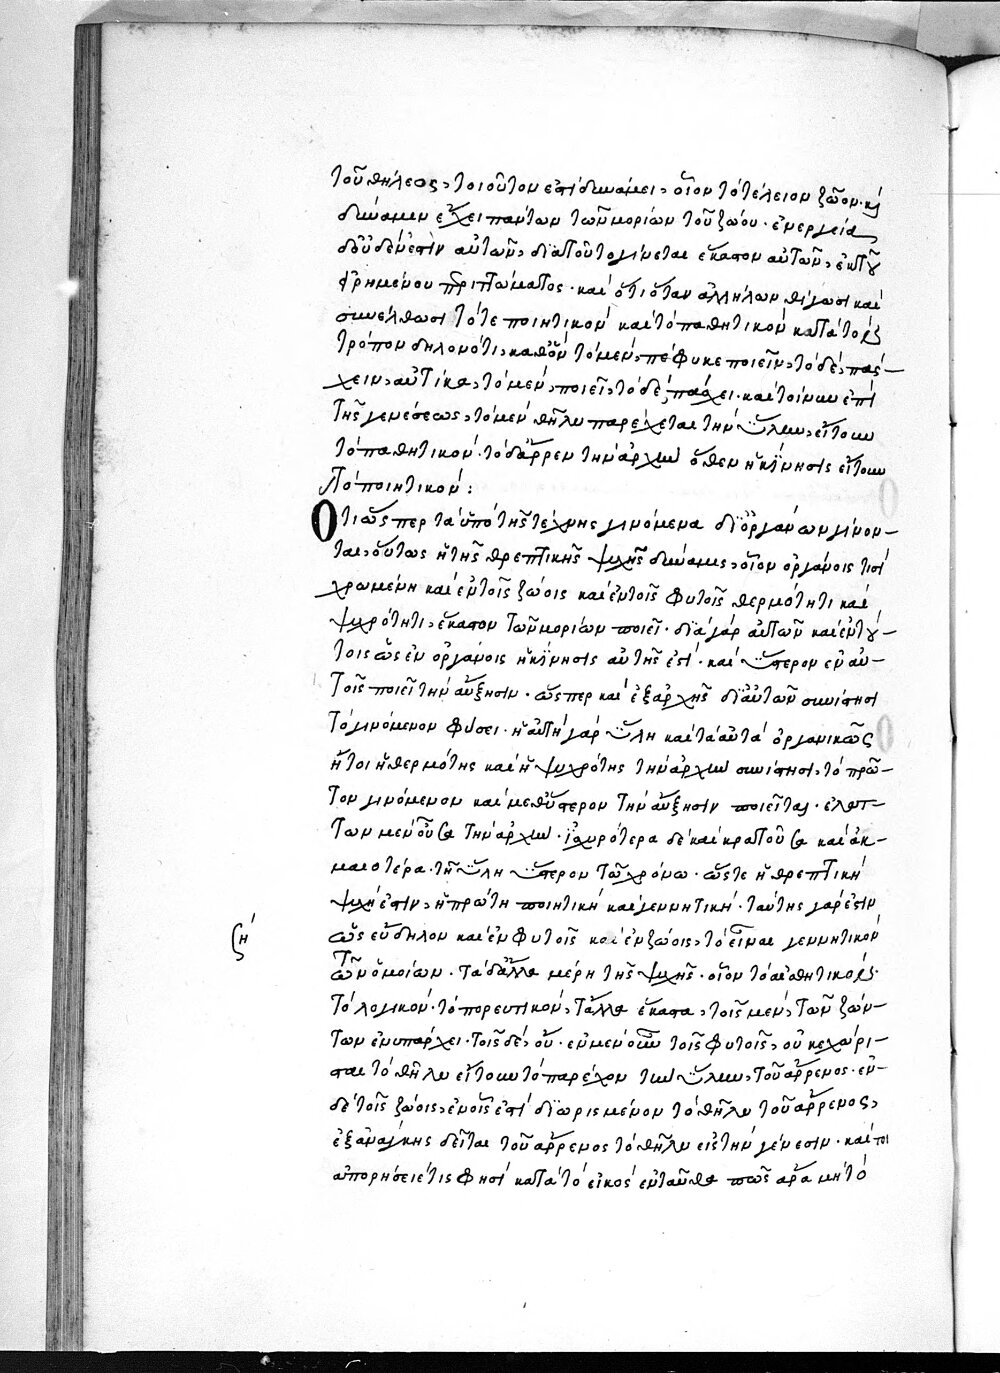 τοῦ θήλεος, τοιοῦτον ἐστὶ δυνάμει, οἷον τὸ τέλειον ζῶον· κỳ
δύναμιν ἔχει πάντων τῶν μορίων τοῦ ζώου· ἐνεργείᾳ
δ' οὐδέν ἐστιν αὐτῶν, διατοῦτο γίνεται ἕκαστον αὐτῶν, ἐκ τοῦ
εἰρημένου περιττώματος· καὶ ὅτι ὅταν ἀλλήλων θίγωσι καὶ
συνέλθωσι τό τε ποιητικὸν καὶ τὸ παθητικὸν κατὰ τὸν
τρόπον δηλονότι, καθ' ὃν τὸ μὲν, πέφυκε ποιεῖν, τὸ δὲ, πάσ-
χειν, αὐτίκα, τὸ μὲν, ποιεῖ, τὸ δὲ, πάσχει· καὶ τοίνυν ἐπὶ
τῆς γενέσεως, τὸ μὲν θῆλυ παρέχεται τὴν ὕλην, εἴτουν
τὸ παθητικόν· τὸ δ' ἄρρεν τὴν ἀρχὴν ὅθεν ἡ κίνησις εἴτουν
τὸ ποιητικόν:
Ὅτι ὥσπερ τὰ ὑπὸ τῆς τέχνης γινόμενα δι' ὀργάνων γίνον-
ται, οὕτως ἡ τῆς θρεπτικῆς ψυχῆς δύναμις, οἷον ὀργάνοις τισὶ
χρωμένη καὶ ἐν τοῖς ζώοις καὶ ἐν τοῖς φυτοῖς θερμότητι καὶ
ψυχρότητι, ἕκαστον τῶν μορίων ποιεῖ· διὰ γὰρ αὐτῶν καὶ ἐν τού-
τοις ὡς ἐν ὀργάνοις ἡ κίνησις αὐτῆς ἐστί· καὶ ὕστερον ἐν αὐ-
τοῖς ποιεῖ τὴν αὔξησιν· ὥσπερ καὶ ἐξ ἀρχῆς δι' αὐτῶν συνίστησι
τὸ γινόμενον φύσει· ἡ αὐτὴ γὰρ ὕλη καὶ τὰ αὐτὰ ὀργανικῶς
ἤτοι ἡ θερμότης καὶ ἡ ψυχρότης τὴν ἀρχὴν συνίστησι, τὸ πρῶ-
τον γινόμενον καὶ μεθύστερον τὴν αὔξησιν ποιεῖται· ἐλάτ-
των μὲν οὖσα τὴν ἀρχὴν· ἰσχυρότερα δὲ καὶ κρατοῦσα καὶ ἀκ-
μαιοτέρα· τῇ ὕλῃ ὕστερον τῷ χρόνῳ· ὥστε ἡ θρεπτικὴ
ψυχή ἐστιν, ἡ πρώτη ποιητικὴ καὶ γεννητική· ταύτης γάρ ἐστιν
ὡς εὔδηλον καὶ ἐν φυτοῖς καὶ ἐν ζώοις, τὸ εἶναι γεννητικὸν
τῶν ὁμοίων· τὰ δ' ἄλλα μέρη τῆς ψυχῆς· οἷον τὸ αἰσθητικὸν·
τὸ λογικόν· τὸ πορευτικόν, τἄλλα ἕκαστα, τοῖς μὲν, τῶν ζών-
των ἐνυπάρχει· τοῖς δὲ, οὔ· ἐν μὲν οὖν τοῖς φυτοῖς, οὐ κεχώρι-
σται τὸ θῆλυ εἴτουν τὸ παρέχον τὴν ὕλην, τοῦ ἄρρενος· ἐν
δὲ τοῖς ζώοις, ἐν οἷς ἐστὶ διωρισμένον τὸ θῆλυ τοῦ ἄρρενος,
ἐξ ἀνάγκης δεῖται τοῦ ἄρρενος τὸ θῆλυ εἰς τὴν γένεσιν· καίτοι
ἀπορήσειέ τις φησὶ κατὰ τὸ εἰκὸς ἐνταῦθα πῶς ἄρα μὴ τὸ
ζη'